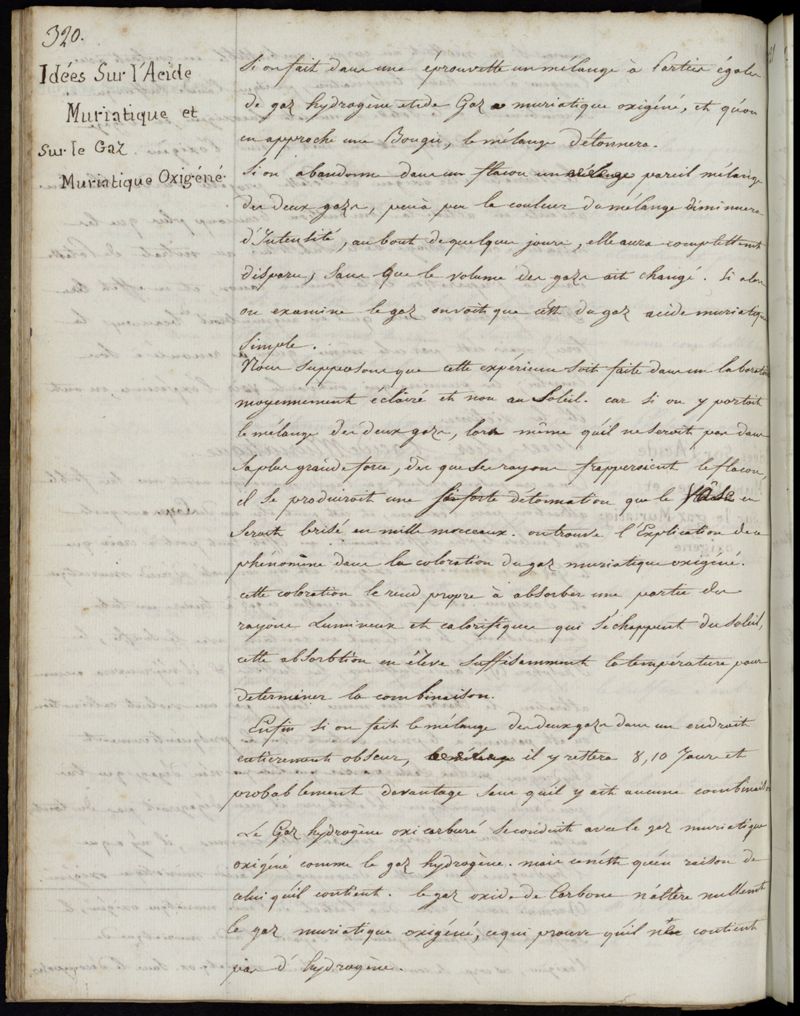 320.
Idées Sur l'Acide
Muriatique et
Sur le Gaz
Muriatique Oxigéné.
Si on fait dans une éprouvette un mélange à Parties égales
de gaz hydrogène et de Gaz muriatique oxigéné, et qu'on
en approche une Bougie, le mélange détonnera.
Si on abandonne dans un flacon un pareil mélange
des deux gazs, peu à peu la couleur du mélange diminuera
d'Intensité, au bout de quelques jours, elle aura complettemt
disparu, sans que le volume des gazs ait changé. Si alors
on examine le gaz on voit que c'est du gaz acide muriatique
simple.
Nous supposons que cette expérience soit faite dans un laboratoire
moyennement éclairé et non au Soleil. car si on y portoit
le mélange des deux gazs, lors même qu'il ne seroit pas dans
sa plus grande force, dès que ses rayons frapperoient le flacon,
il se produiroit une si forte détonnation que le Vase en
seroit brisé en mille morceaux. on trouve l'Explication de ce
phénomène dans la coloration du gaz muriatique oxigéné.
cette coloration le rend propre à absorber une partie des
rayons Lumineux et calorifiques qui s'échappent du soleil,
cette absorbtion en élève suffisamment la température pour
determiner la combinaison.
Enfin si on fait le mélange des deux gazs dans un endroit
entièrement obscur, il y restera 8, 10 Jours et
probablement davantage sans qu'il y ait aucune combinaison
Le Gaz hydrogène oxi carburé se conduit avec le gaz muriatique
oxigéné comme le gaz hydrogène. mais ce n'est qu'en raison de
celui qu'il contient. le gaz oxide de Carbone n'altère nullement
le gaz muriatique oxigéné, ce qui prouve qu'il ne contient
pas d'hydrogène.